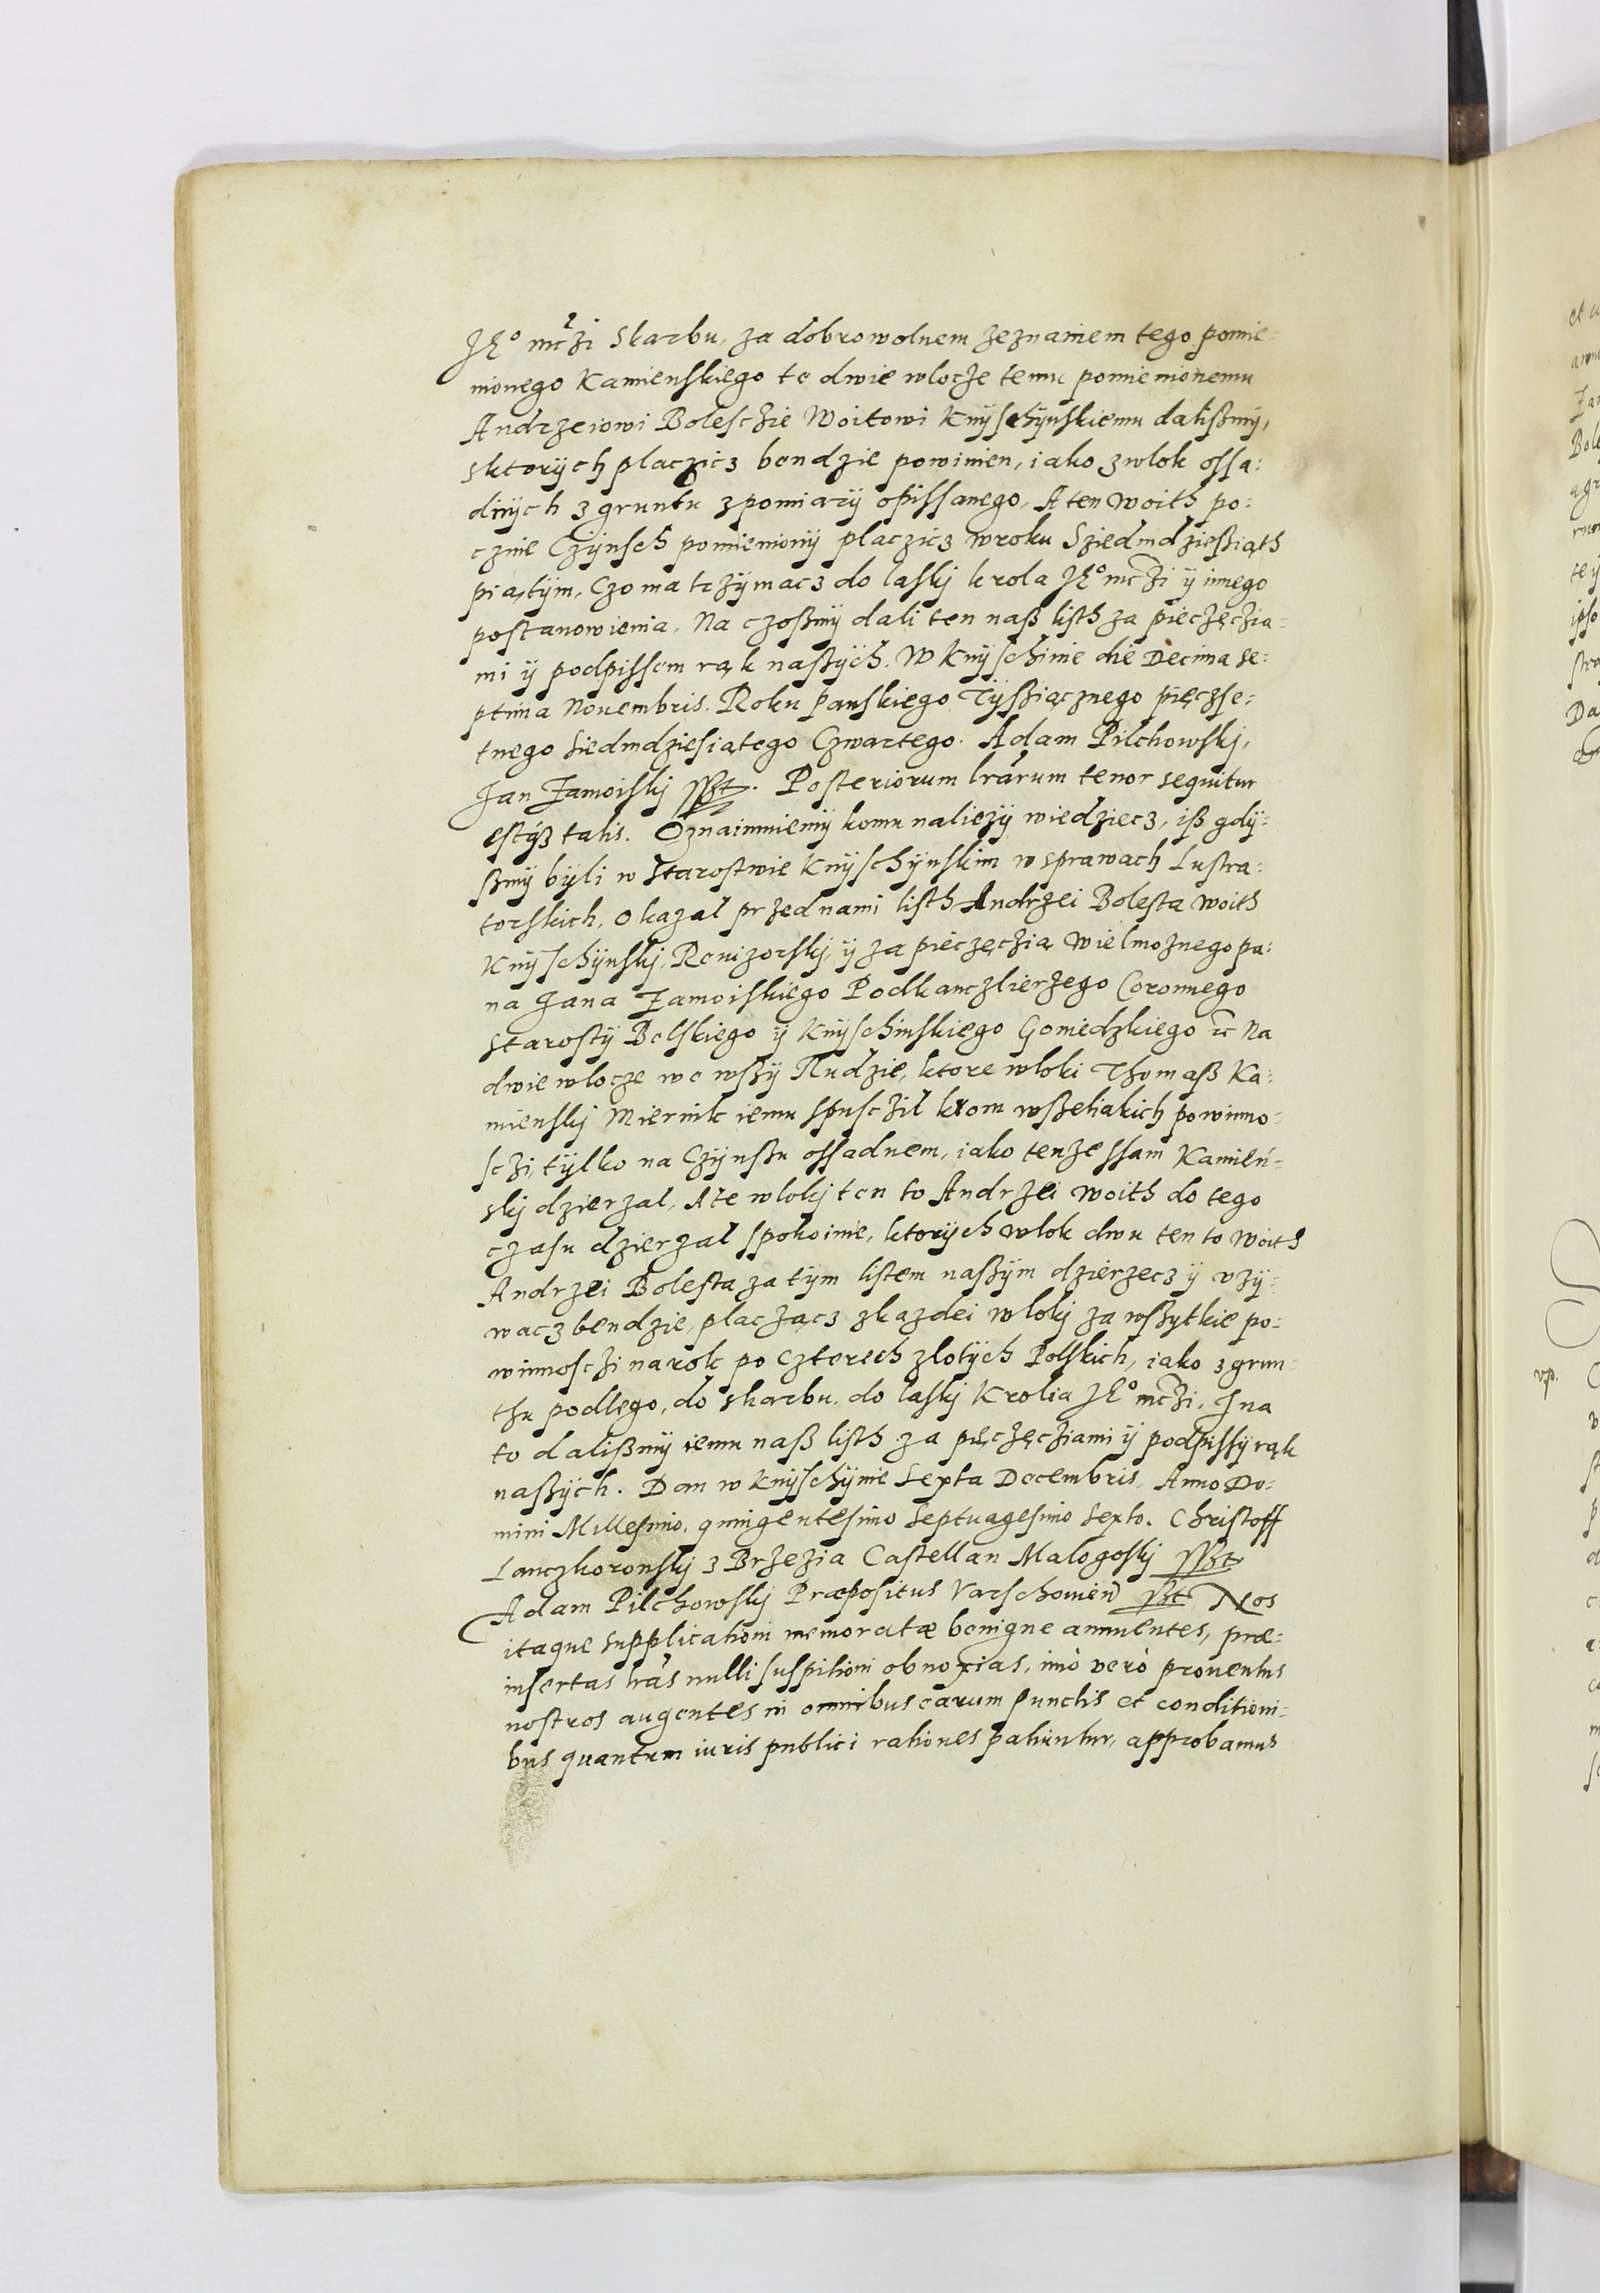 JE° mczi Skarbu, za dobrowolnem zeznaniem tego pomie-
nionego Kamienskiego te dwie wlocze temu pomienionemu
Andrzeiowi Bolesczie Woitowi Knÿschÿnskiemu dalißmÿ,
sktorÿch placzicz bendzie powinien, iako zwlok ossa:
dnÿch z gruntu zpomiarÿ opissanego, A ten Woith po:
cznie Czÿnsch pomienionÿ placzicz wroku Sziedmdzießiąth
piątÿm, Czo ma trzÿmacz do laskj krola JE° mczi ÿ innego
postanowienia, Na czoßmÿ dali ten naß listh za pieczęczia-
mi ÿ podpissem rąk naßÿch. W Knÿschinie die Decima se:
ptima Nouembris. Roku Panskiego Tÿßiącznego pięczse:
tnego Siedmdziesiątego Czwartego. Adam Pilchowskj,
Jan Zamoiskj sszt. Posteriorum lrarum tenor sequitur
estqz talis. Oznaimuiemÿ komu naliezÿ wiedziecz, iß gdÿ:
ßmÿ bÿli w Starostwie Knÿschÿnskim w sprawach Lustra:
torskich, Okazal przednami listh Andrzei Bolesta Woith
Knÿschÿnskj, Rewizorskj, ÿ za pieczęczią Wielmoznego pa:
na Jana Zamoiskiego Podkanczlierzego Coronnego
Starostÿ Belskiego ÿ Knÿschinskiego Goniedzkiego ꝛc Na
dwie wlocze we wßÿ Rudzie, ktore wloki Thomaß Ka:
mienskj Miernik iemu spusczil krom wßeliakich powinno-
sczi, tÿlko na Czÿnßu ossadnem, iako tenze ssam Kamień-
skj dzierzal, A te wlokj ten to Andrzei woith do tego
czasu dzierzal spokoinie, ktorÿch wlok dwu ten to Woith
Andrzei Bolesta, za tÿm listem naßÿm dzierzecz ÿ vzÿ-
wacz bendzie, placząc z kazdei wlokj za wßÿtkie po-
winnosczi na rok po Czterech zlotÿch Polskich, iako z grun-
thu podlego, do skarbu, do laskj Krolia JE° mczi, J na
to dalißmÿ iemu naß listh za pięczęcziami ÿ podpissÿ rąk
naßÿch. Dan w Knÿschÿnie Sexta Decembris, Anno Do-
mini Millesimo, quingentesimo Septuagesimo Sexto. Christoff
Lanczkoronskj z Brzezia Castellan Malogoskj sszt
Adam Pilchowskj Præpositus Varschouien sszt Nos
itaque supplicationi memoratæ benigne annuentes, præ-
insertas lras nulli suspitioni obnoxias, imò verò prouentus
nostros augentes in omnibus earum punctis et conditioni-
bus quantum iuris publici rationes patiuntur, approbamus